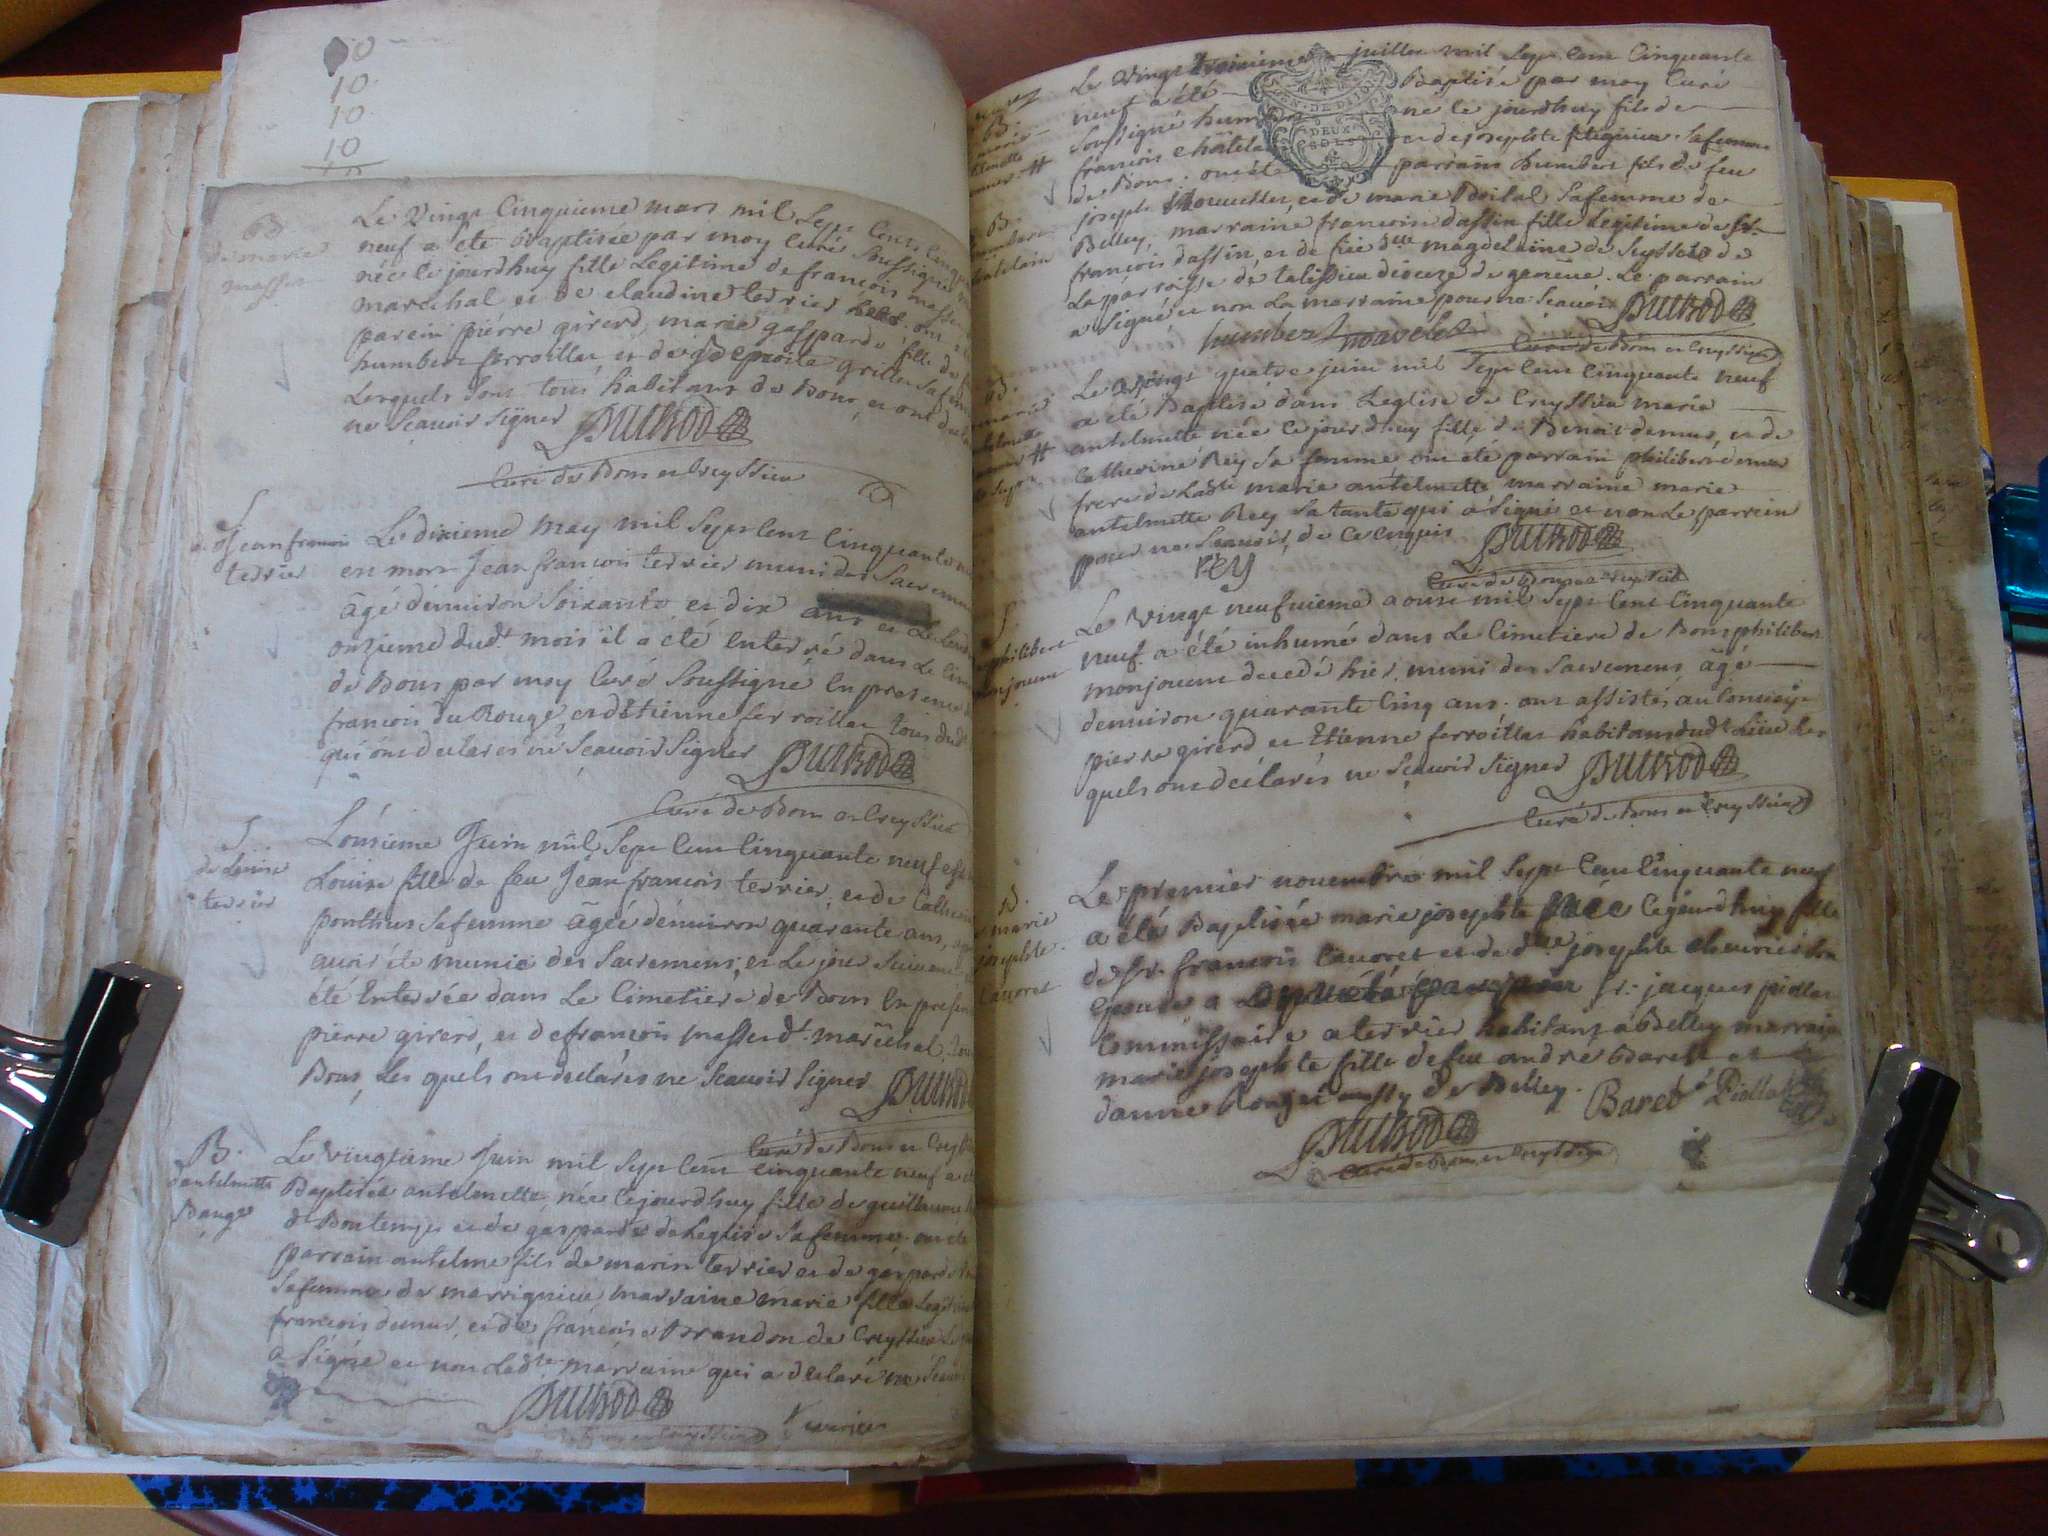 10
10
10
10
B.
de marie
masson
Le Vingt Cinquieme mars mil Sept Cent Cinq
neuf a été Baptisée par moy Curé Soussigné
née le jourdhuy fille Legitime de françois masse
marechal et de claudine terrier
parein pierre girerd, marie gasparde fille de
humbert ferroillet et de grillet Safem
Lesquels Sont tous habitans de Bons, et ont
ne Scavoir Signer DUTROD
Curé de Bons et Creyssieu
S
de Jean francois
terrier
Le dixieme may mil Sept Cent Cinquante
est mort Jean françois terrier muni des Sacremen
âgé denuiron Soixante et dix ans et Le Lend
onzieme dudt. mois il a été Enterré dans Le Cime
de Bons par moy Curé Soussigné En presence d
francois du Rouge, et d'Etienne ferroillet tous dudt
qui ont declarés ne Scavoir Signer DUTROD
Curé de Bons et Creyssieu
S
de Louise
terrier
Lonsieme Juin mil Sept Cent Cinquante neuf est
Louise fille de feu Jean francois terrier, et de Catheri
ponthus Safemme âgée denuiron quarante ans, ap
avoir été munie des Sacremens, et Le jour Suivant
été Enterrée dans Le Cimetiere de Bons En presen
pierre girerd, et de francois masse dt. marechal, tou
Bons, Les quels ont declarés ne Scavoir Signer DUTROD
Curé de Bons et Creyss
B.
d'antelmette
Bouge
Le vingtieme Juin mil Sept Cent Cinquante neuf a et
Baptisée antelmette, née Lejourdhuy fille de guillaume
dt Bontemps et de gasparde de Leglise Safemme. ont été
parrain antelme fils de marin terrier et de gasparde
Safemme de marrignieu marraine marie fille Legitim
francois dumur, et de françoise Brandon de Creyssieu Le
a Signé et non Ladte. marraine qui a declaré ne Scavoi
DUTROD
terrier
Le Vingt troisieme juillet mil Sept Cent Cinquante
neuf a été Baptisé par moy Curé
Soussigné humbert né le jourdhuy fils de
francois Châtela et de josephte Safemme
de Bons. ont été parrain humbert fils de feu
joseph et de marie Safemme de
Belley, marraine francoise dassin fille Legitime de Sr.
francois dassin, et de feüe dlle magdelaine de Seyssel de
La parroisse de talissieu dioceze de genêve. Le parrain
a Signé et non La marraine pour ne Scavoir DUTROD
humbert
Curé de Bons et Creyssieu
GEN. DE DIJON
DEUX
SOLS
B.
humbert
hatelain
B.
marie
antelmette
Le Vingt quatre juin mil Sept Cent Cinquante neuf
a été Baptisée dans Leglise de Creyssieu marie
antelmette née Cejourdhuy fille de Benoit dumur, et de
Catherine Rey Sa femme ont été parrain philibert dumur
frere de Ladte marie antelmette marraine marie
antelmette Rey Sa tante qui a Signé et non Le parrein
pour ne Scavoir, de Ce enquis DUTROD
rey
Curé de Bons et Creyssieu
S
philibert
monjouent
Le Vingt neufuieme aoust mil Sept Cent Cinquante
neuf. a été inhumé dans Le Cimetiere de Bons philibert
monjouent decedé hier, muni des Sacremens, âgé
denuiron quarante Cinq ans. ont assistés au Convoÿ
pierre girerd et Etienne ferroillet habitans dudt. Lieu Les
quels ont declarés ne Scavoir Signer DUTROD
Curé de Bons et Creyssieu
B.
marie
josephte
Cauoret
Le premier nouembre mil Sept Cent Cinquante neuf
a été Baptisée marie josephte née Cejourdhuy fille
de Sr. francois Cauoret et de dlle josephte Son
Epouse, a Sr. jacques piollet
Commissaire a terrier habitant a Belley marraine
marie josephte fille de feu andré Baret et
danne Rouge aussy de Belley. Baret Piollet
DUTROD
Curé de Bons et Creyssieu